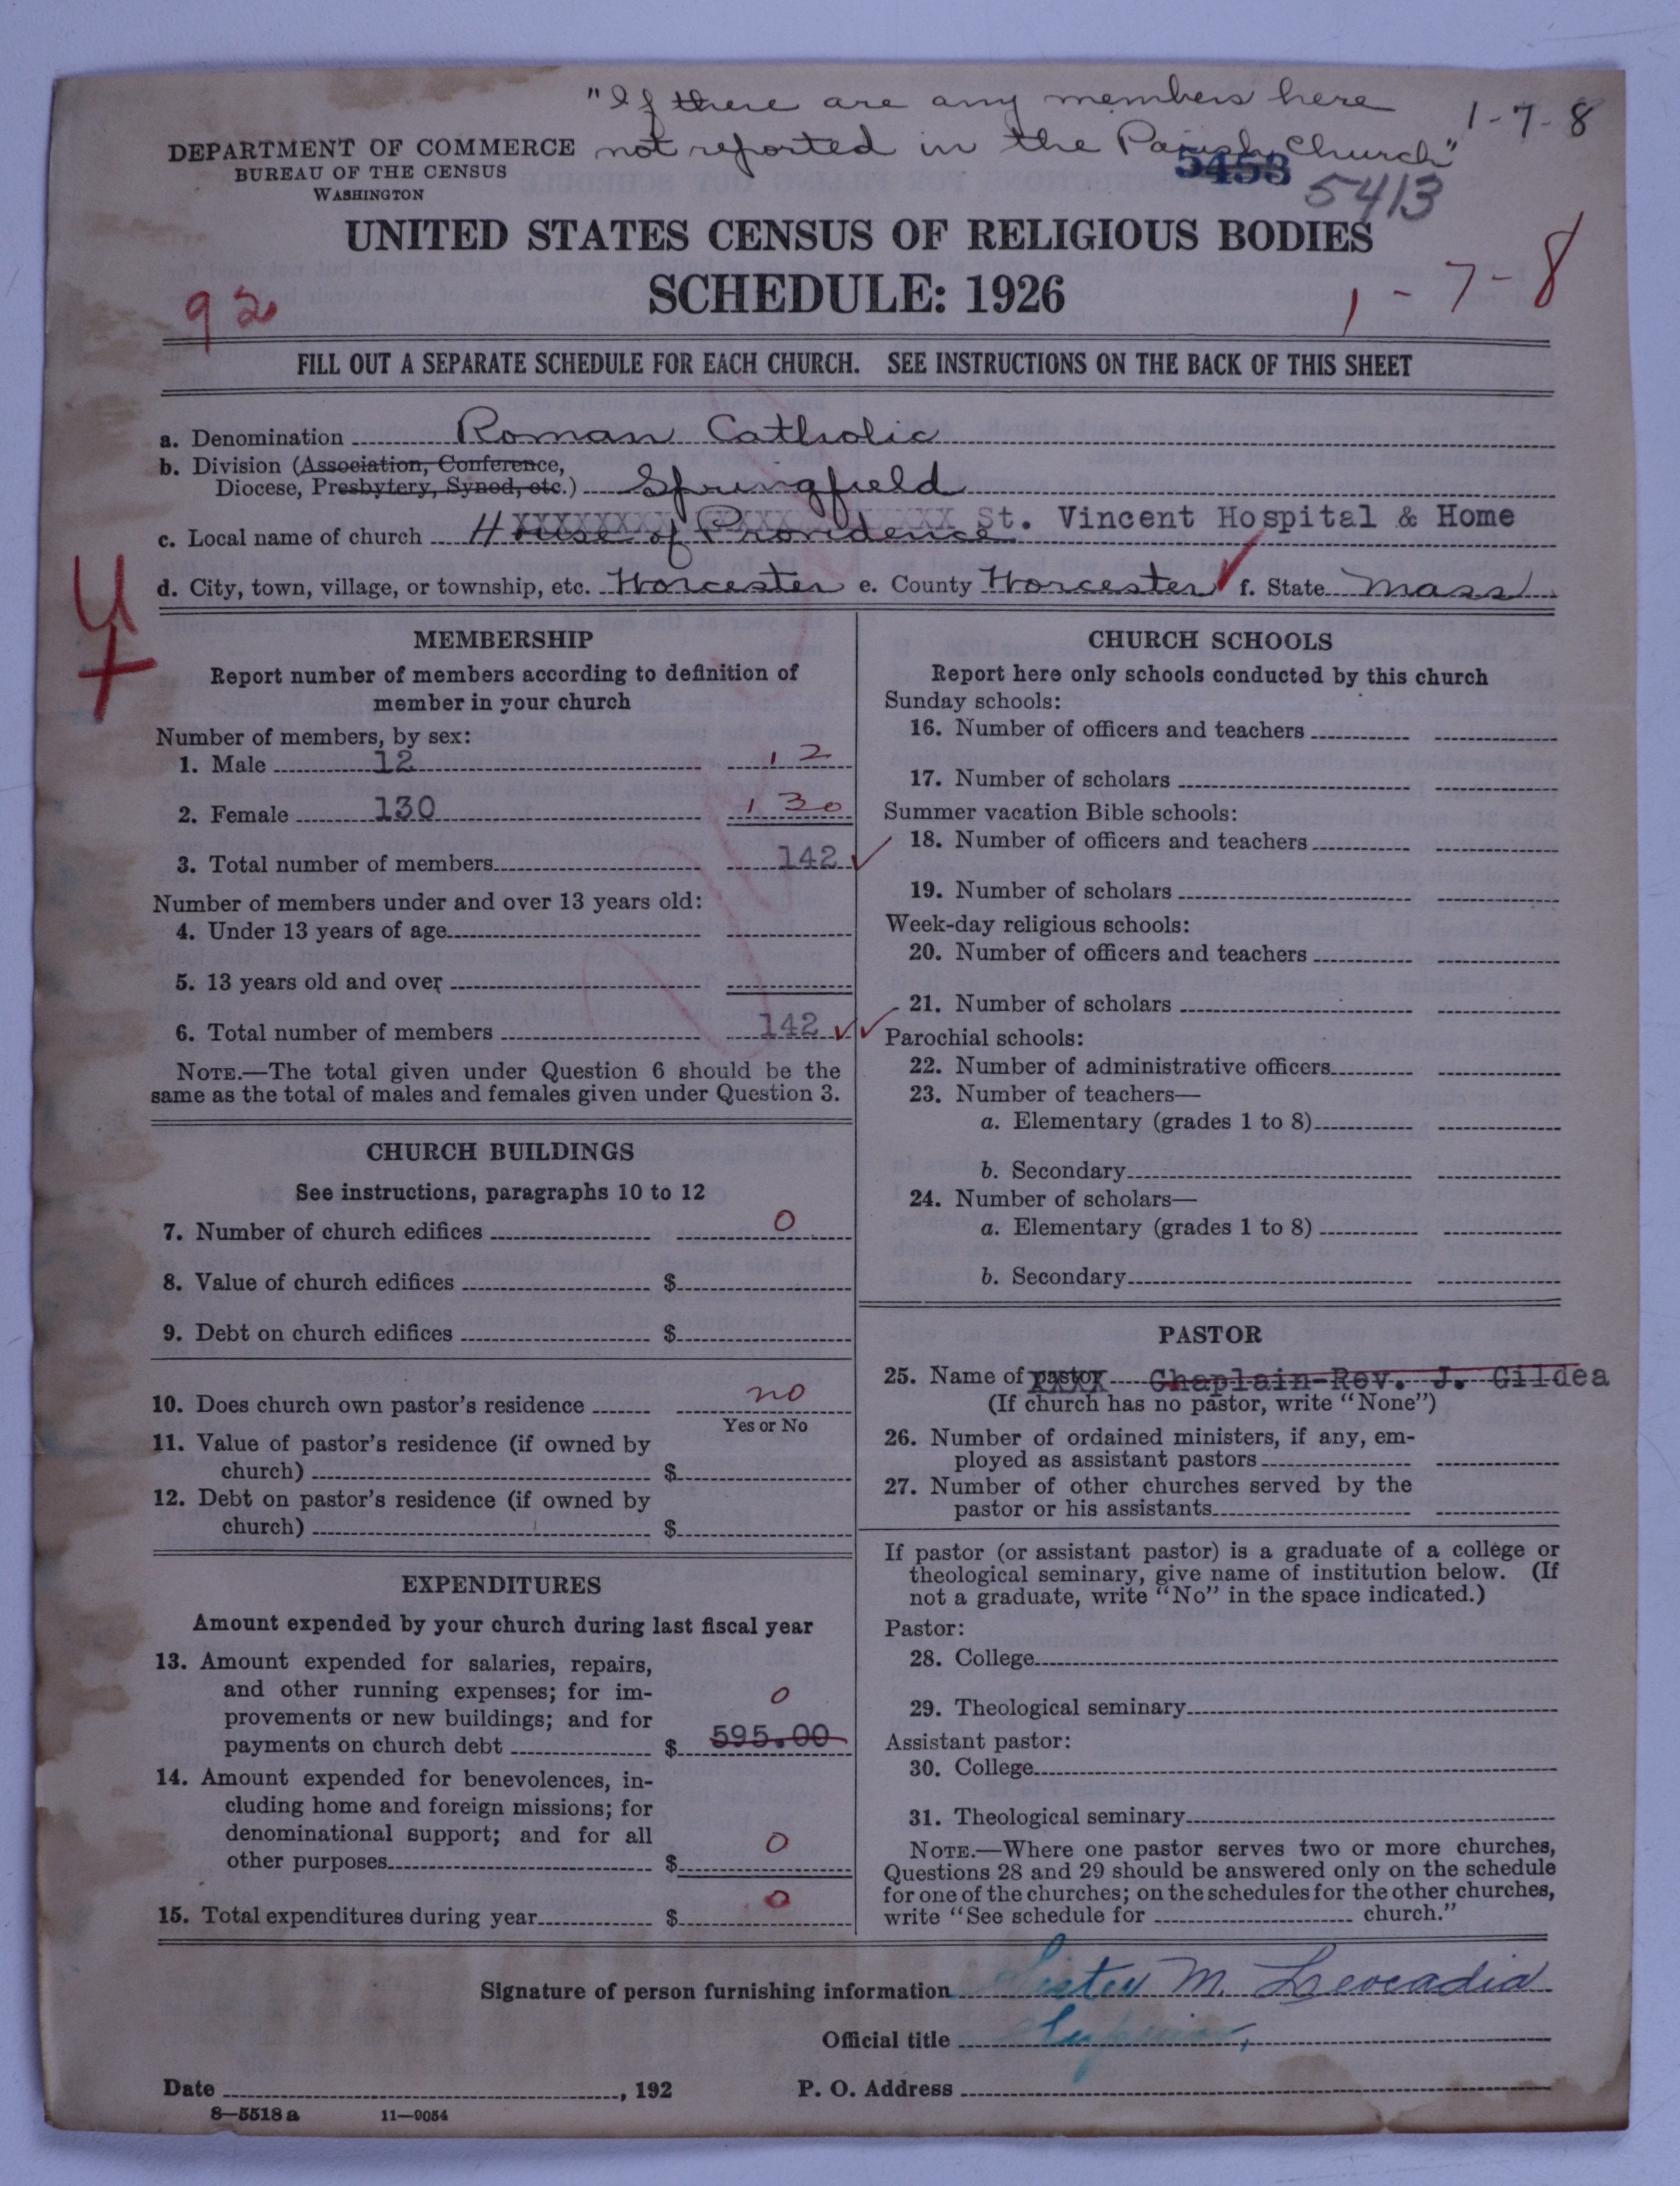 "If there are any members here
not reported in the Parish Church"
1-7-8
DEPARTMENT OF COMMERCE
BUREAU OF THE CENSUS
WASHINGTON
5458
5413
UNITED STATES CENSUS OF RELIGIOUS BODIES
SCHEDULE: 1926
92
1-7-8
FILL OUT A SEPARATE SCHEDULE FOR EACH CHURCH. SEE INSTRUCTIONS ON THE BACK OF THIS SHEET
a. Denomination Roman Catholic
b. Division (Association, Conference,
Diocese, Presbytery, Synod, etc.) Springfield
c. Local name of church House of Providence St. Vincent Hospital & Home
d. City, town, village, or township, etc. Worcester e. County Worcester f. State Mass
MEMBERSHIP
Report number of members according to definition of
member in your church
Number of members, by sex:
1. Male 12 12
2. Female 130 130
3. Total number of members 142
Number of members under and over 13 years old:
4. Under 13 years of age
5. 13 years old and over
6. Total number of members 142
NOTE.—The total given under Question 6 should be the
same as the total of males and females given under Question 3.
CHURCH BUILDINGS
See instructions, paragraphs 10 to 12
7. Number of church edifices 0
8. Value of church edifices $
9. Debt on church edifices $
10. Does church own pastor's residence no
Yes or No
11. Value of pastor's residence (if owned by
church) $
12. Debt on pastor's residence (if owned by
church) $
EXPENDITURES
Amount expended by your church during last fiscal year
13. Amount expended for salaries, repairs,
and other running expenses; for im-
provements or new buildings; and for
payments on church debt $ 595.00 0
14. Amount expended for benevolences, in-
cluding home and foreign missions; for
denominational support; and for all
other purposes $ 0
15. Total expenditures during year $ 0
CHURCH SCHOOLS
Report here only schools conducted by this church
Sunday schools:
16. Number of officers and teachers
17. Number of scholars
Summer vacation Bible schools:
18. Number of officers and teachers
19. Number of scholars
Week-day religious schools:
20. Number of officers and teachers
21. Number of scholars
Parochial schools:
22. Number of administrative officers
23. Number of teachers—
a. Elementary (grades 1 to 8)
b. Secondary
24. Number of scholars—
a. Elementary (grades 1 to 8)
b. Secondary
PASTOR
25. Name of pastor Chaplain-Rev. J. Gildea
(If church has no pastor, write "None")
26. Number of ordained ministers, if any, em-
ployed as assistant pastors
27. Number of other churches served by the
pastor or his assistants
If pastor (or assistant pastor) is a graduate of a college or
theological seminary, give name of institution below. (If
not a graduate, write "No" in the space indicated.)
Pastor:
28. College
29. Theological seminary
Assistant pastor:
30. College
31. Theological seminary
NOTE.—Where one pastor serves two or more churches,
Questions 28 and 29 should be answered only on the schedule
for one of the churches; on the schedules for the other churches,
write "See schedule for church."
Signature of person furnishing information Sister M. Leocadia
Official title Superior,
Date , 192 P. O. Address
8—5518a 11—9054